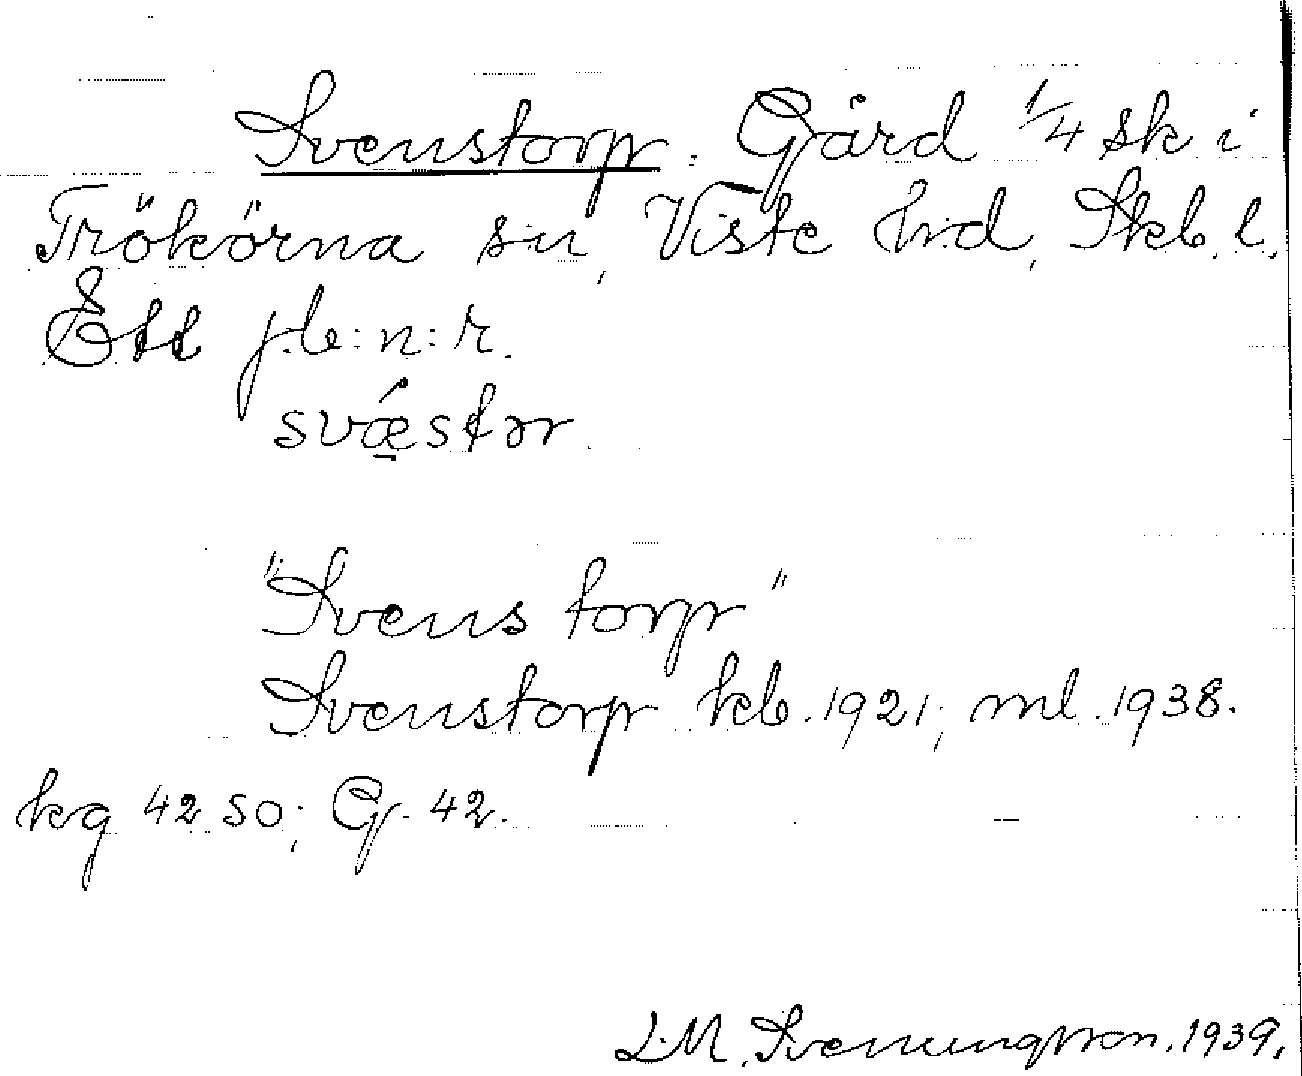 Svenstorp. Gård 1/4 sk i
Trökörna sn, Viste hd, Skb. l.
Ett jb:n:r.
svǽstər.
"Svens torp"
Svenstorp kb. 1921; ml. 1938.
kg 42 SO; G. 42.
L.M. Svenungsson. 1939.